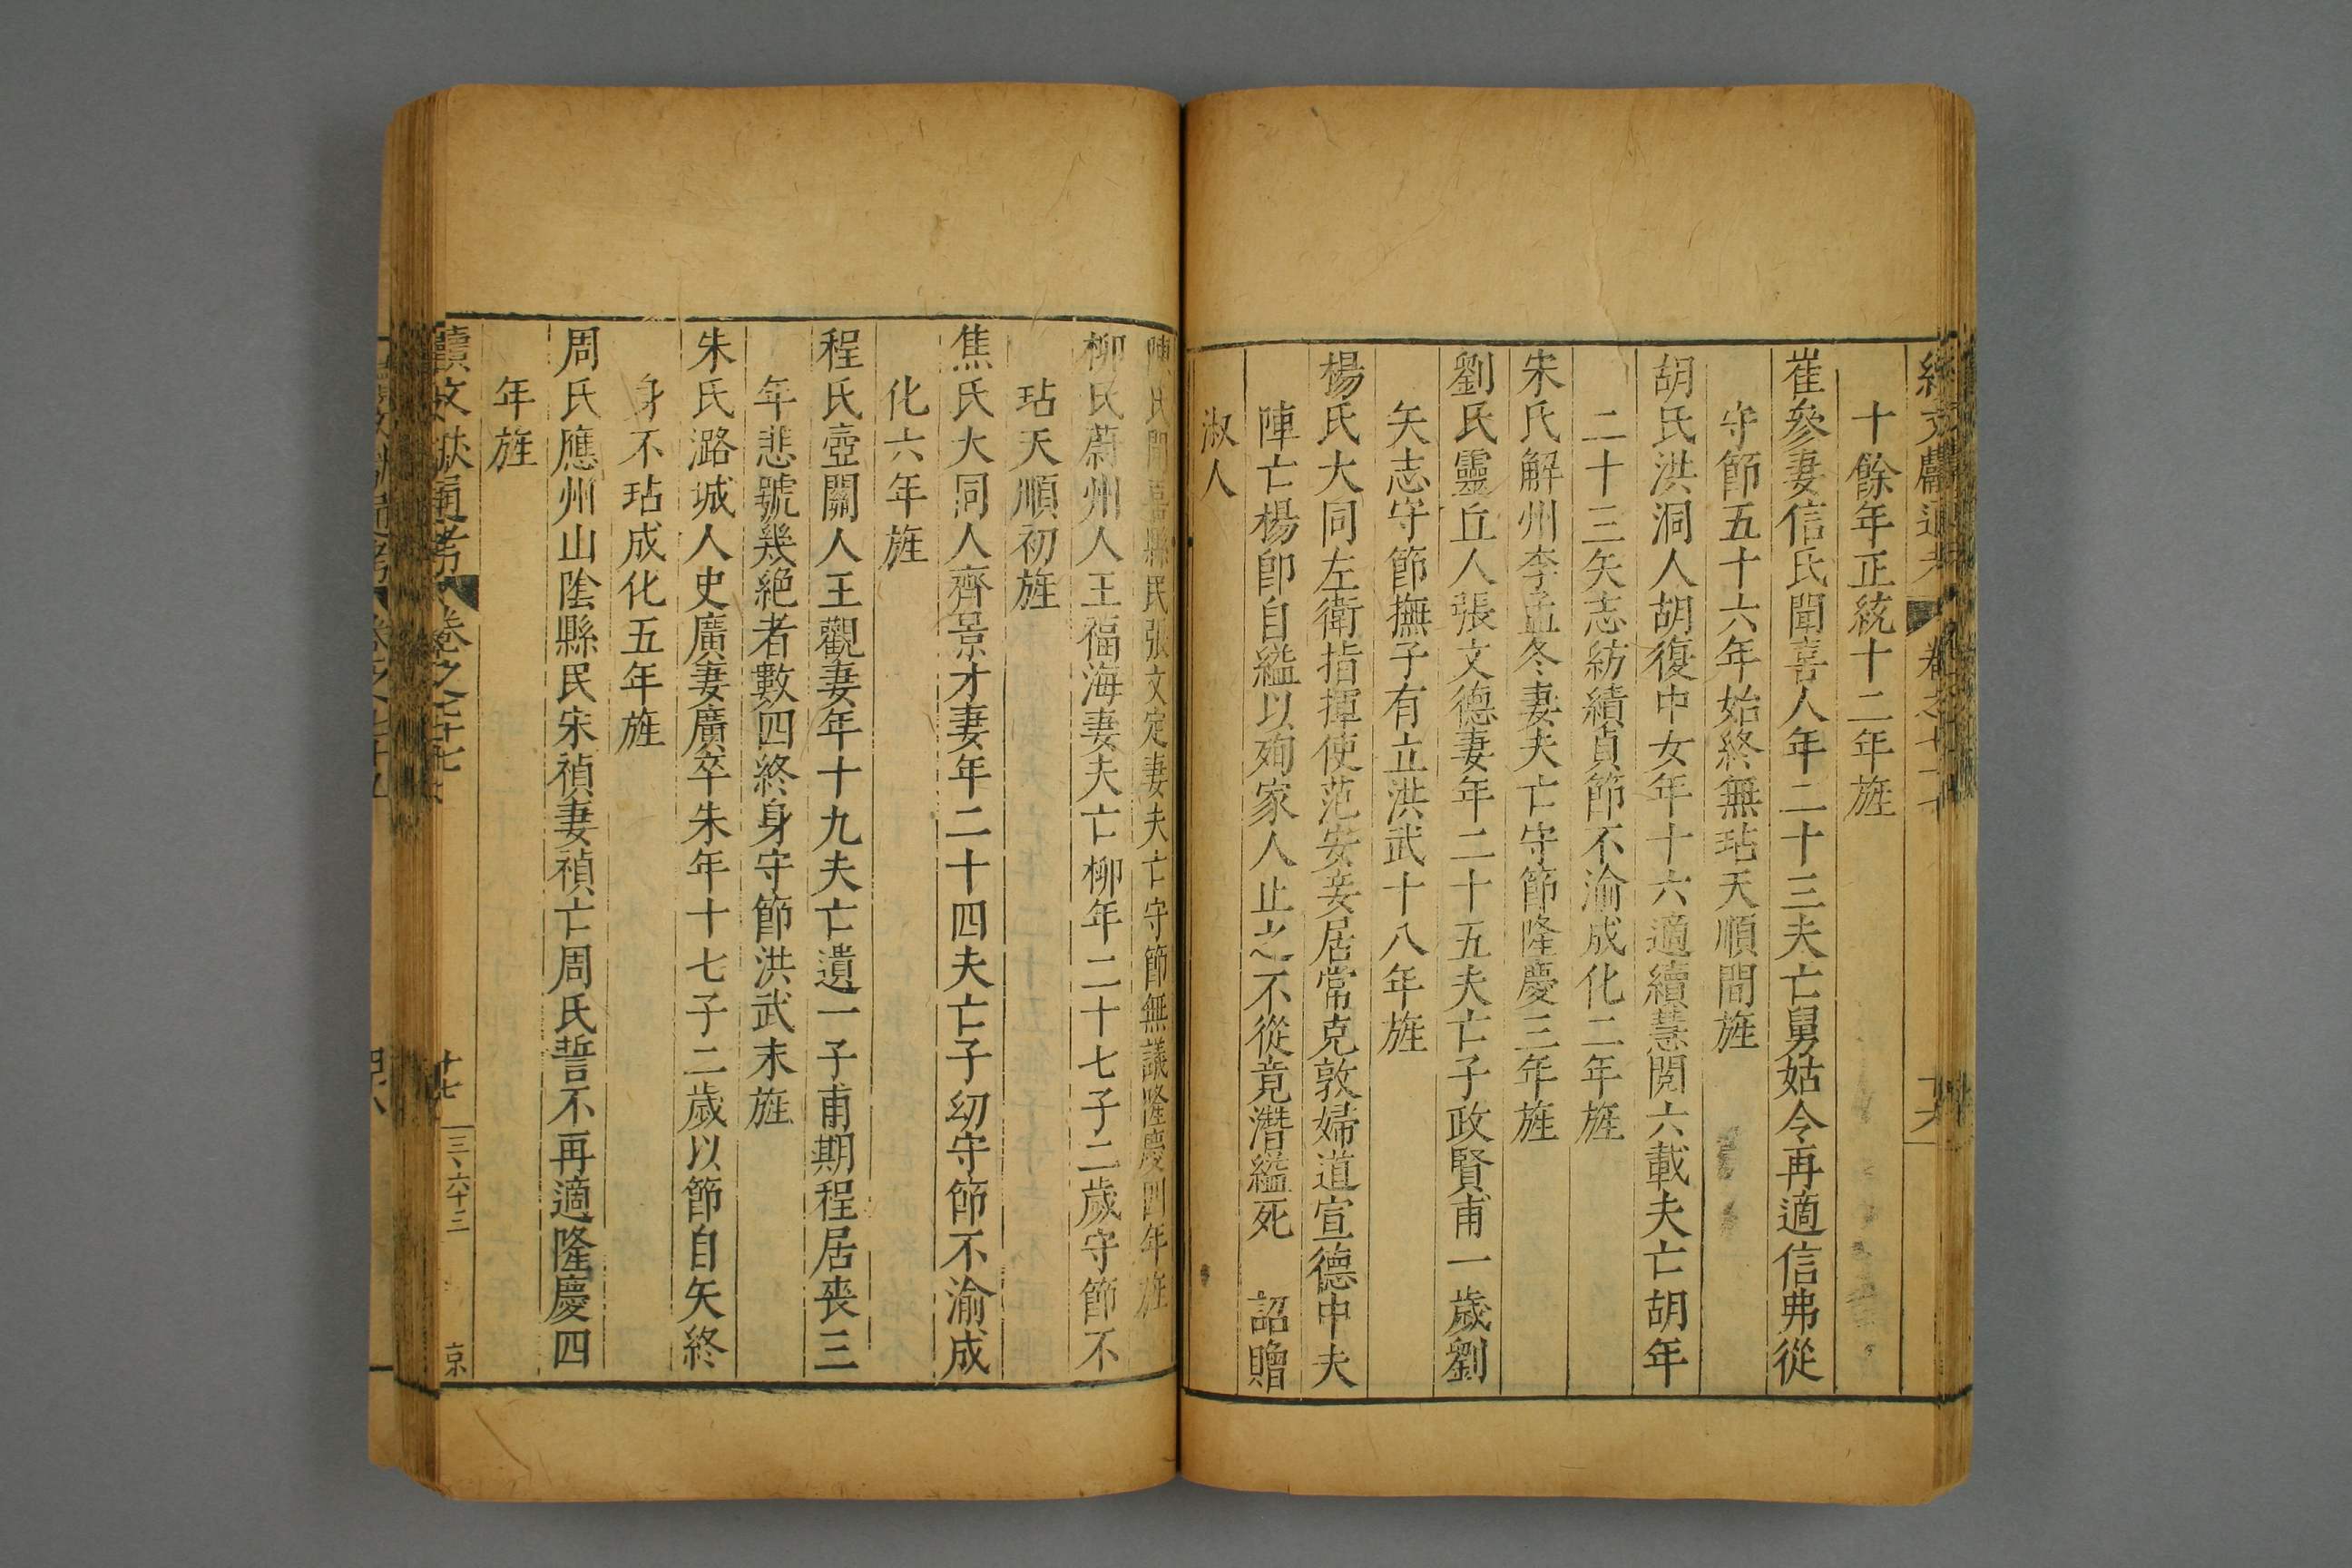 十餘年正統十二年旌
崔參妻信氏聞喜人年二十三夫亡舅姑令再適信弗從
守節五十六年始終無玷天順間旌
胡氏洪洞人胡復中女年十六適續慧閱六載夫亡胡年
二十三矢志紡績貞節不渝成化二年旌
宋氏解州李孟冬妻夫亡守節隆慶三年旌
劉氏靈丘人張文德妻年二十五夫亡子政賢甫一歲劉
矢志守節撫子有立洪武十八年旌
楊氏大同左衛指揮使范安妾居常克敦婦道宣德中夫
陣亡楊卽自縊以殉家人止之不從竟潛縊死 詔贈
淑人
陳氏聞喜縣民張文定妻夫亡守節無議隆慶四年旌
柳氏蔚州人王福海妻夫亡柳年二十七子二歲守節不
玷天順初旌
焦氏大同人齊景才妻年二十四夫亡子幼守節不渝成
化六年旌
程氏壺關人王觀妻年十九夫亡遺一子甫期程居喪三
年悲號幾絕者數四終身守節洪武末旌
朱氏潞城人史廣妻廣卒朱年十七子二歲以節自矢終
身不玷成化五年旌
周氏應州山陰縣民宋禎妻禎亡周氏誓不再適隆慶四
年旌
續文獻通考 卷之七十七 十七 三六十三 京